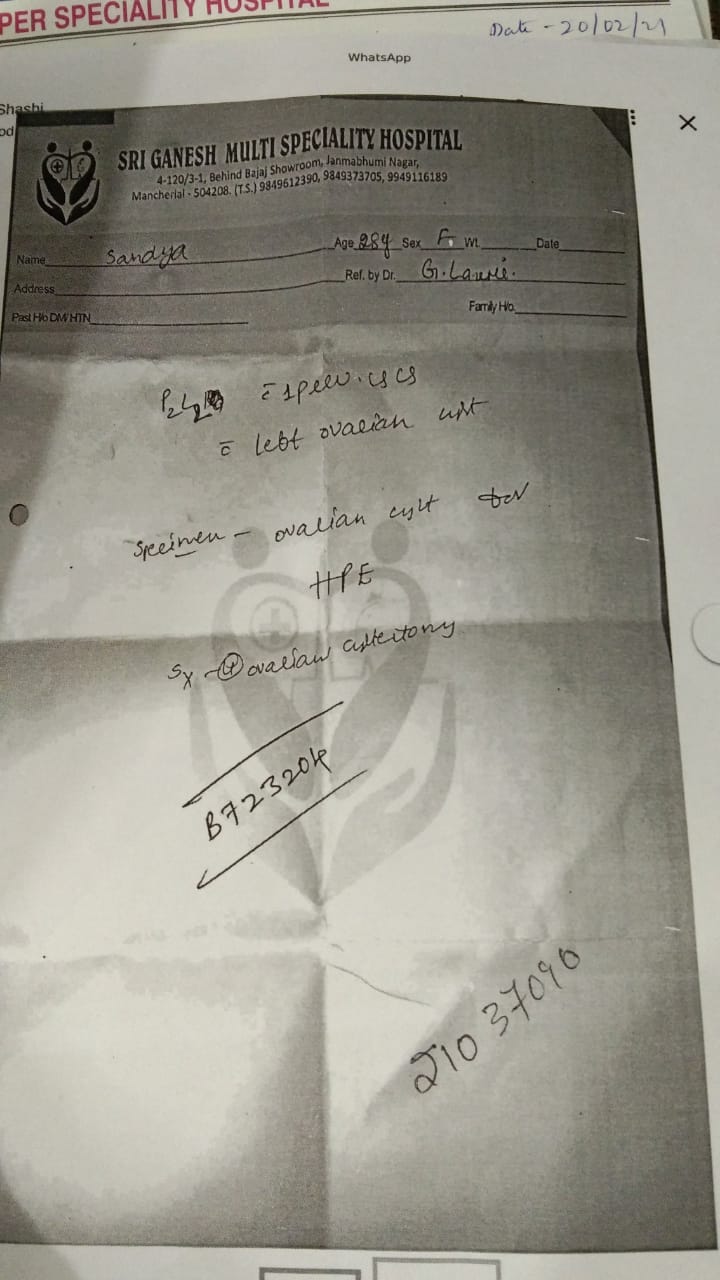 PER SPECIALITY HOSPITAL
Date - 20/02/21
WhatsApp
Shashi
od
SRI GANESH MULTI SPECIALITY HOSPITAL
4-120/3-1, Behind Bajaj Showroom, Janmabhumi Nagar,
Mancherial - 504208. (T.S.) 9849612390, 9849373705, 9949116189
Name Sandya Age 28y Sex F. Wt. Date
Address Ref. by Dr. G.
Past H/o DM/HTN Family H/o.
P2L2 c̄
c̄ left ovarian cyst
Specimen - ovarian cyst for
HPE
Sx - ovarian cystectomy
B723204
21037090